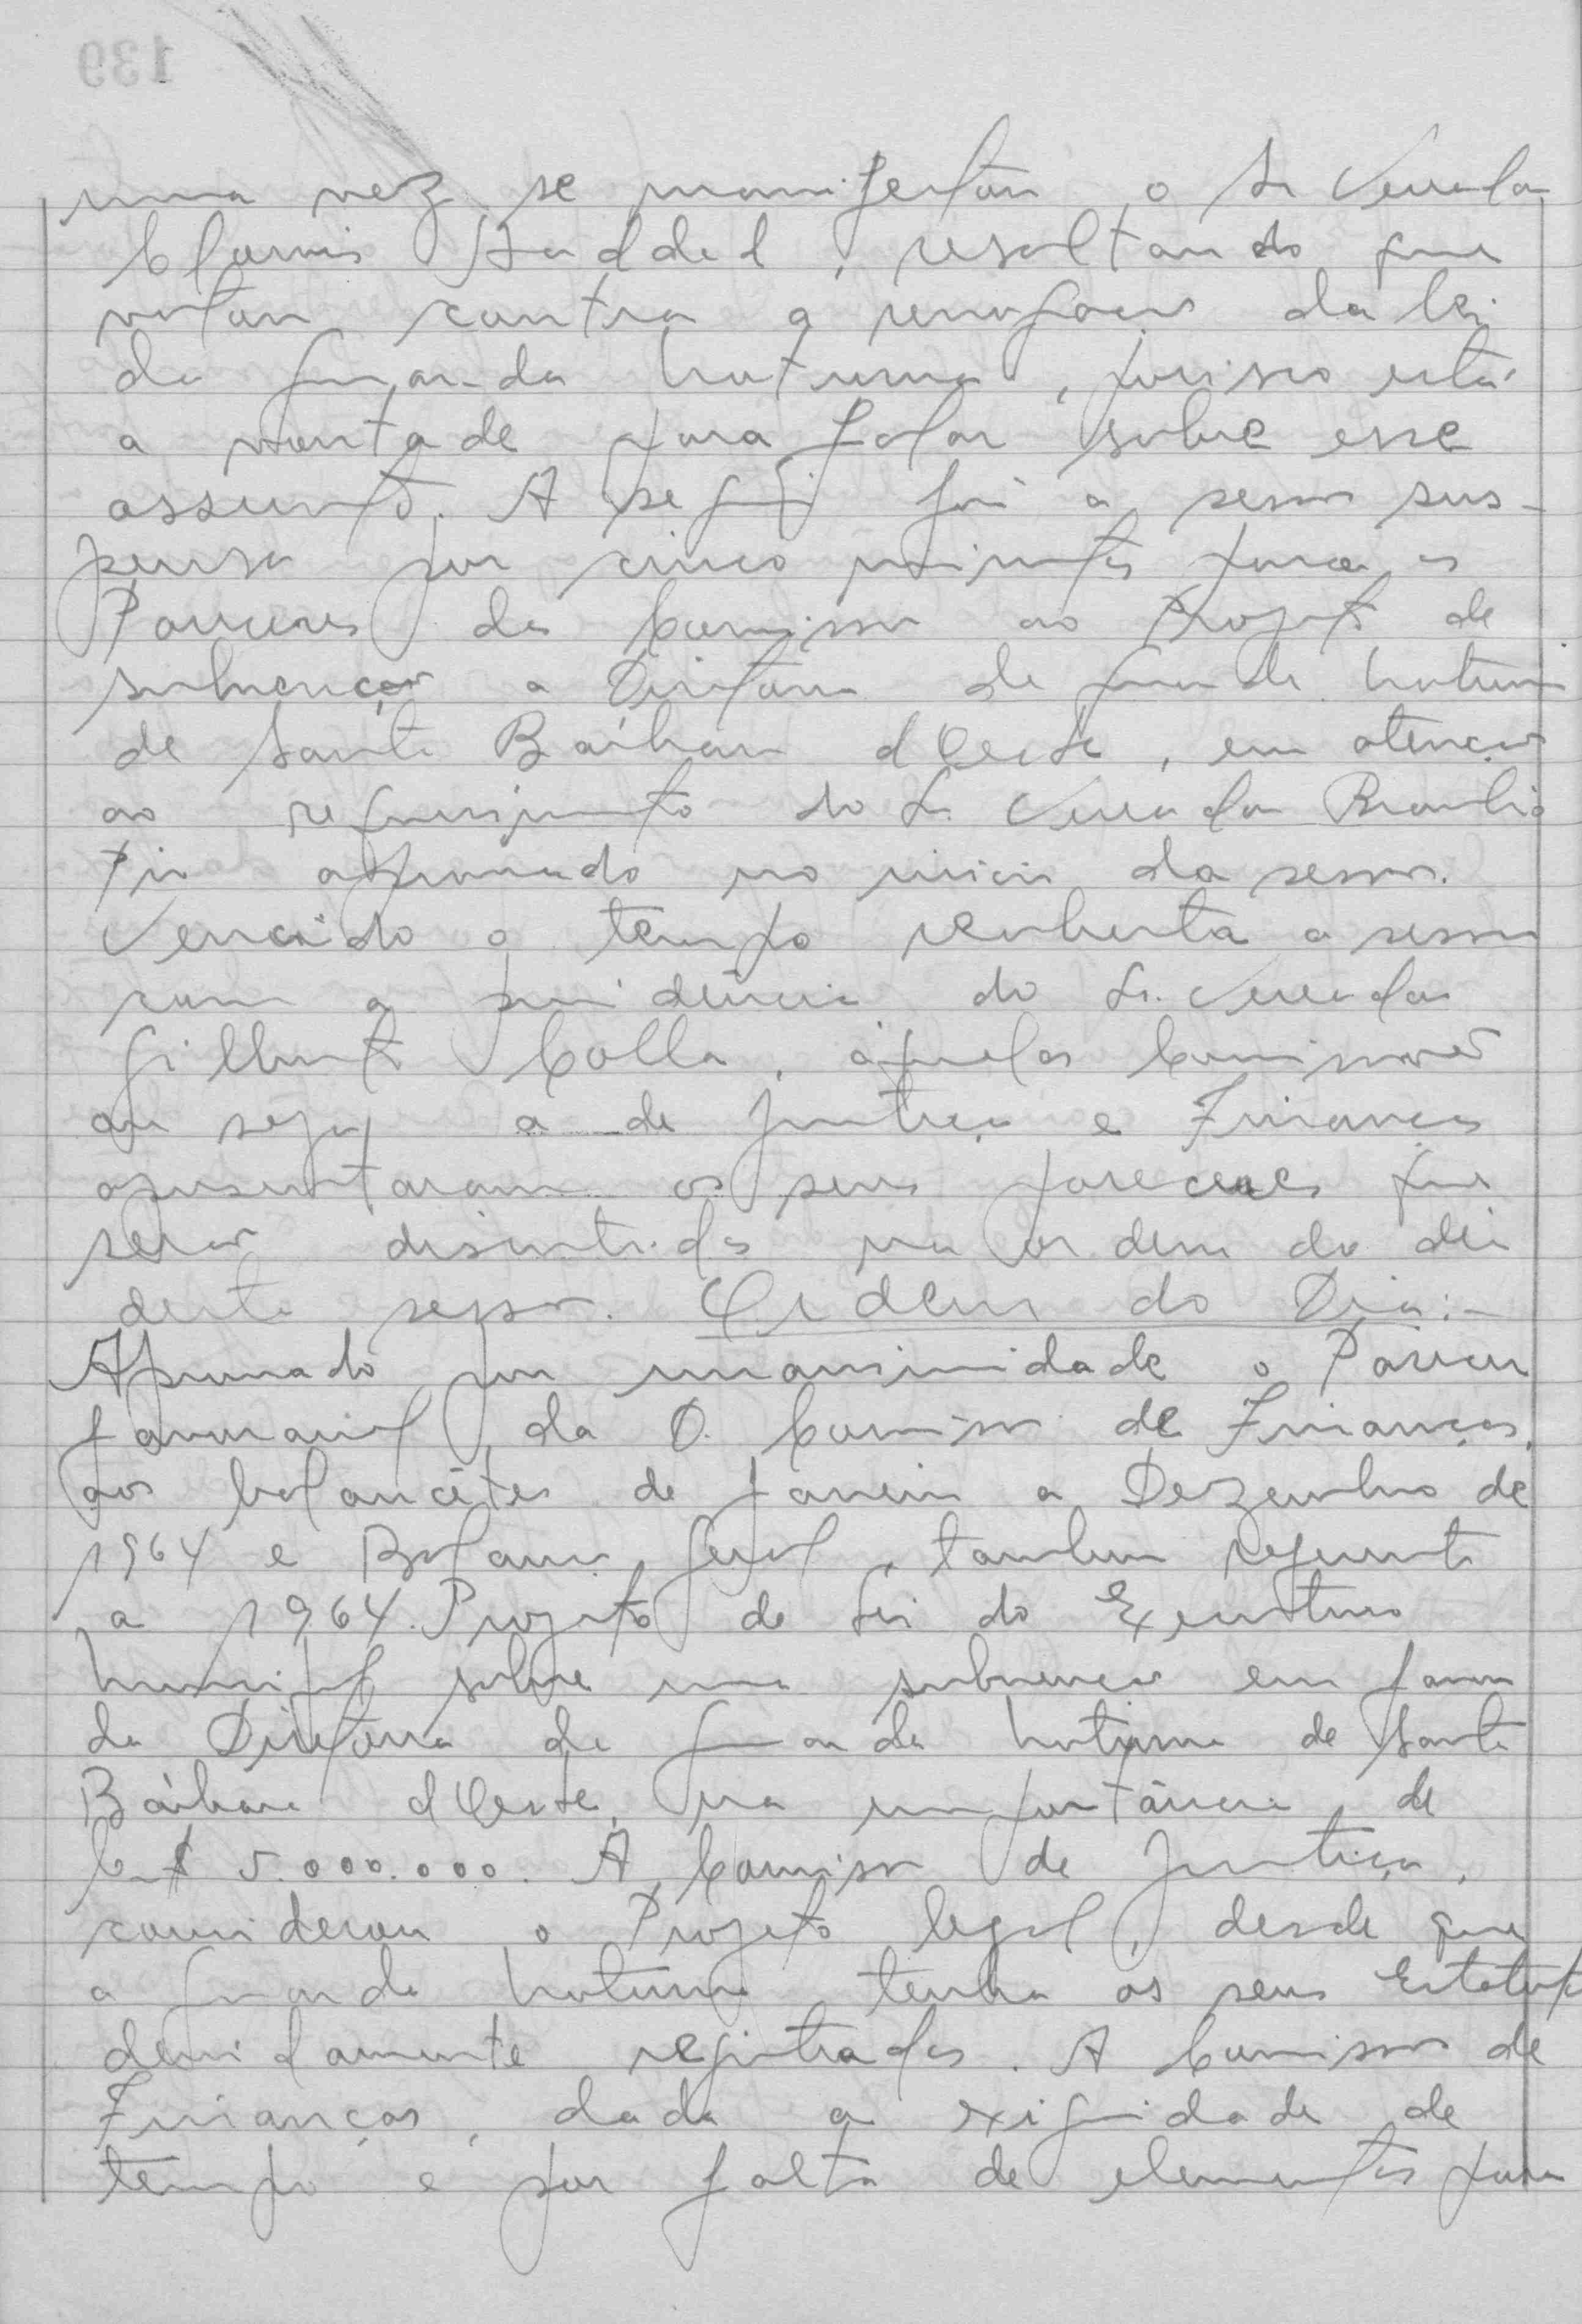 139
uma vez se manifestar o Sr Vereador
Clovis Haddad, resaltando que
votou contra a revogação da lei
da guarda noturna, porisso está
a vontade para falar sobre esse
assunto. A seguir foi a sessão sus-
pensa por cinco minutos para os
Pareceres da Comissão ao Projeto de
subvenção a Diretoria de Guarda Noturna
de Santa Bárbara d'Oeste, em atenção
ao requerimento do Sr. Vereador Braulio
Pio aprovado no inicio da sessão.
Vencido o tempo reaberta a sessão
com a presidência do Sr. Vereador
Gilberto Colla, aquelas Comissões
ou seja a de Justiça e Finanças
apresentaram os seus pareceres que
serão discutidos na ordem do dia
desta sessão. Ordem do Dia:-
Aprovado por unanimidade o Parecer
favoravel da D. Comissão de Finanças,
aos balancêtes de Janeiro a Dezembro de
1964 e Balanço Geral, tambem referente
a 1964. Projeto de Lei do Executivo
Municipal sobre uma subvenção em favor
da Diretoria da Guarda Noturna de Santa
Bárbara d'Oeste, na importância de
Cr$ 5.000.000. A Comissão de Justiça,
considerou o Projeto legal, desde que
a Guarda Noturna tenha os seus Estatutos
devidamente registrados. A Comissão de
Finanças, dada a exiguidade de
tempo e por falta de elementos para